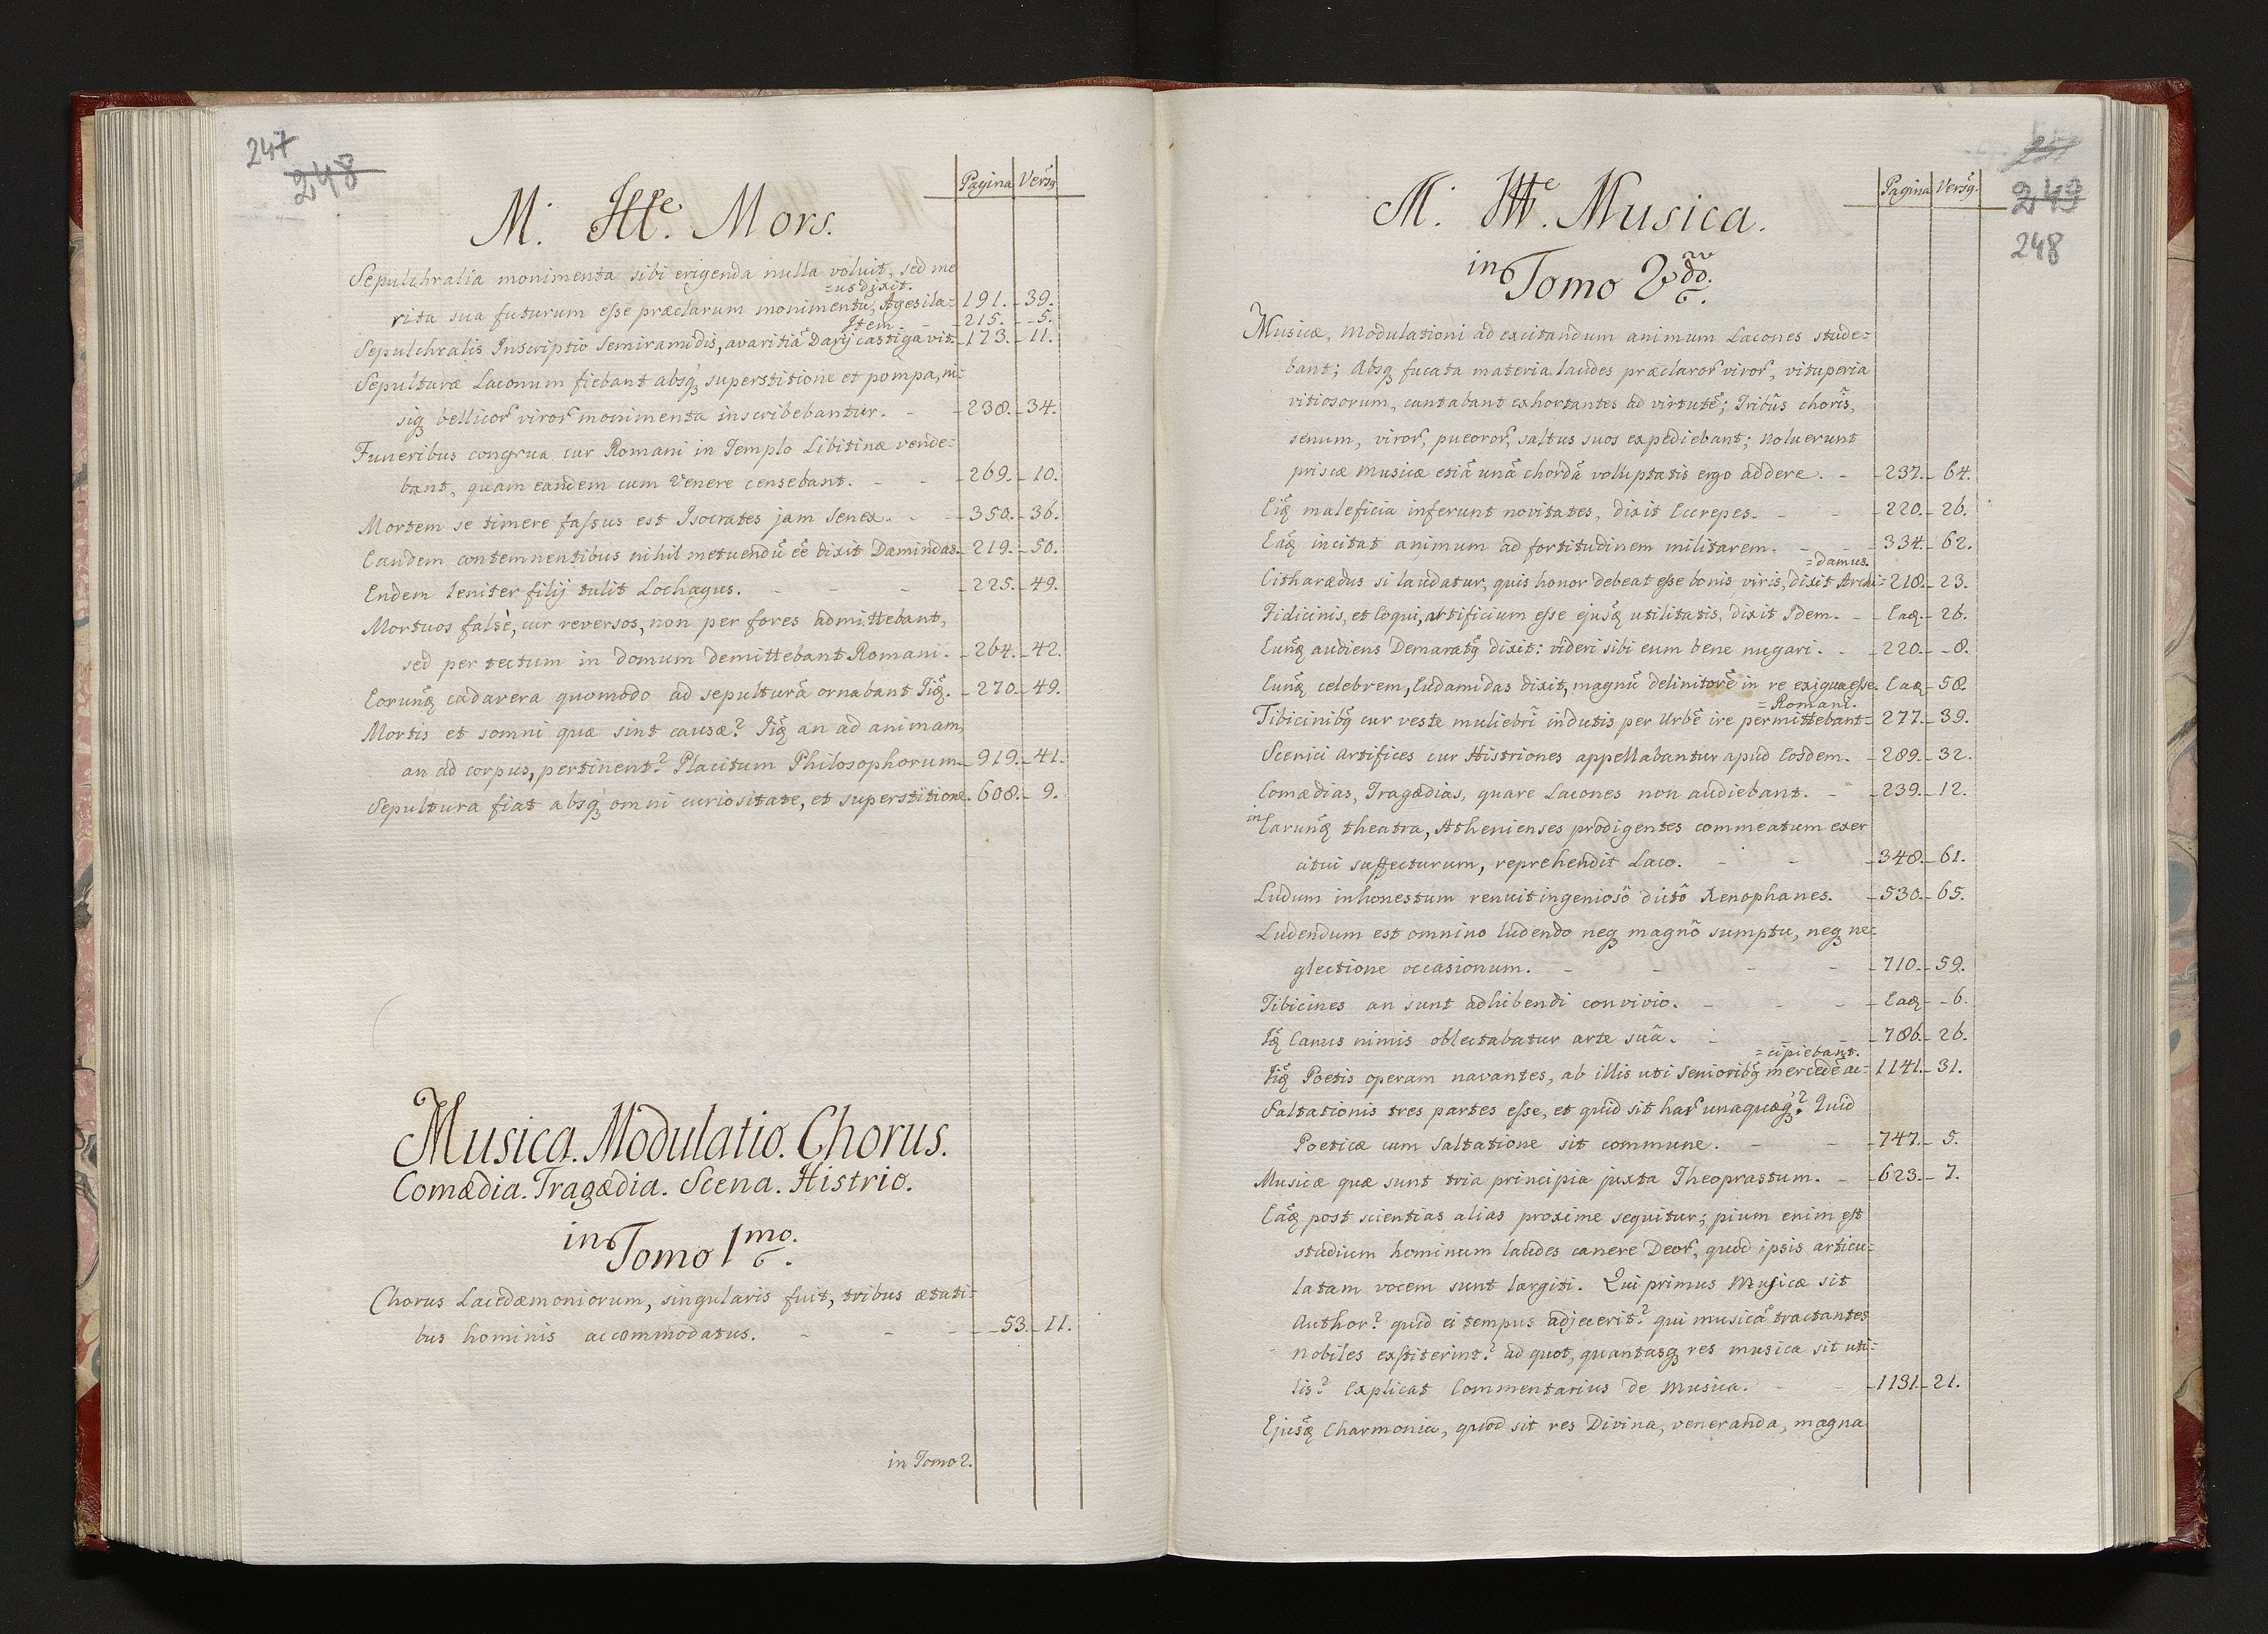 247
248
Pagina Versq̃
M. Ttt.e Mors.
Sepulchralia monimenta sibi erigenda nulla voluit, sed me
=us dixit.
rita sua futurum esse præclarum monimentũ, Agesila= - 191. - 39.
Item - - 215. - 5.
Sepulchralis Inscriptio Semiramidis, avaritiã Darij castigavit - 173. - 11.
Sepulturæ Laconum fiebant absq̃ superstitione et pompa, ni=
siq̃ bellicor̃ viror̃ monimenta inscribebantur. - - 238. - 34.
Funeribus congrua cur Romani in Templo Libitinæ vende=
bant, quam eandem cum Venere censebant. - - - 269. - 10.
Mortem se timere fassus est Isocrates jam Senex. - - 350. - 36.
Eandem contemnentibus nihil metuendũ eẽ dixit Damindas. - 219. - 50.
Eadem leniter filij tulit Lochagus. - - - - 225. - 49.
Mortuos falsè, cur reversos, non per fores admittebant,
sed per tectum in domum demittebant Romani. - 264. - 42.
Eorunq̃ cadavera quomodo ad sepulturã ornabant Iiq̃. - 270. - 49.
Mortis et somni quæ sint causæ? Iiq̃ an ad animam,
an ad corpus, pertinent? Placitum Philosophorum. - 919. - 41.
Sepultura fiat absq̃ omni curiositate, et superstitione. - 608. - 9.
Musica. Modulatio. Chorus.
Comædia. Tragædia. Scena. Histrio.
in Tomo 1mo.
Chorus Lacedæmoniorum, singularis fuit, tribus ætati=
bus hominis accommodatus. - - - - 53. - 11.
in Tomo 2.
249
248
Pagina Versq̃.
M. Ttt.e Musica.
in Tomo 2do.
Musicæ, Modulationi ad excitandum animum Lacones stude=
bant; Absq̃ fucata materia laudes præclaror̃ viror̃, vituperia
vitiosorum, cantabant exhortantes ad virtutẽ; Tribũs chorĩs,
senum, viror̃, pueror̃, saltus suos expediebant; Noluerunt
priscæ Musicæ etiã unã chordã voluptatis ergo addere. - - 237. - 64.
Eiq̃ maleficia inferunt novitates, dixit Eccrepes. - - - 220. - 26.
Eaq̃ incitat animum ad fortitudinem militarem. - - - 334. - 62.
=damus.
Citharædus si laudatur, quis honor debeat esse bonis viris, dixit Archi= 218. - 23.
Fidicinis, et Coqui, artificium esse ejusq̃ utilitatis, dixit Idem. - - Eaq̃. - 26.
Eunq̃ audiens Demaratq̃ dixit: videri sibi eum bene nugari. - - 220. - 8.
Eunq̃ celebrem, Eudamidas dixit, magnũ delinitorẽ in re exigua esse. Eaq̃ - 58.
=Romani.
Tibicinibq̃ cur veste muliebrĩ indutis per Urbẽ ire permittebant= 277. - 39.
Scenici Artifices cur Histriones appellabantur apud Eosdem. - 289. - 32.
Comædias, Tragædias, quare Lacones non audiebant. - - 239. - 12.
in Earunq̃ theatra, Athenienses prodigentes commeatum exer
citui suffecturum, reprehendit Laco. - - - 348. - 61.
Ludum inhonestum renuit ingeniosõ dictõ Xenophanes. - 530. - 65.
Ludendum est omnino ludendo neq̃ magnõ sumptu, neq̃ ne=
glectione occasionum. - - - - - 710. - 59.
Tibicines an sunt adhibendi convivio. - - - - Eaq̃ - 6.
Iq̃ Canus nimis oblectabatur arte suã. - - 786. - 26.
=cipiebant.
Iiq̃ Poetis operam navantes, ab illis uti Senioribq̃ mercedẽ ac= - 1141. - 31.
Saltationis tres partes esse, et quid sit har̃ unaquæq̃? Quid
Poeticæ cum Saltatione sit commune. - - - 747. - 5.
Musicæ quæ sunt tria principia juxta Theoprastum. - - 623. - 7.
Eaq̃ post scientias alias proxime sequitur; pium enim est
studium hominum laudes canere Deor̃, quod ipsis articu=
latam vocem sunt largiti. Qui primus Musicæ sit
Author? quid ei tempus adjecerit? qui musicã tractantes
nobiles exstiterint? ad quot, quantasq̃ res musica sit uti=
lis? Explicat Commentarius de Musica. - - - 1131. - 21.
Ejusq̃ Charmonia, quod sit res Divina, veneranda, magna